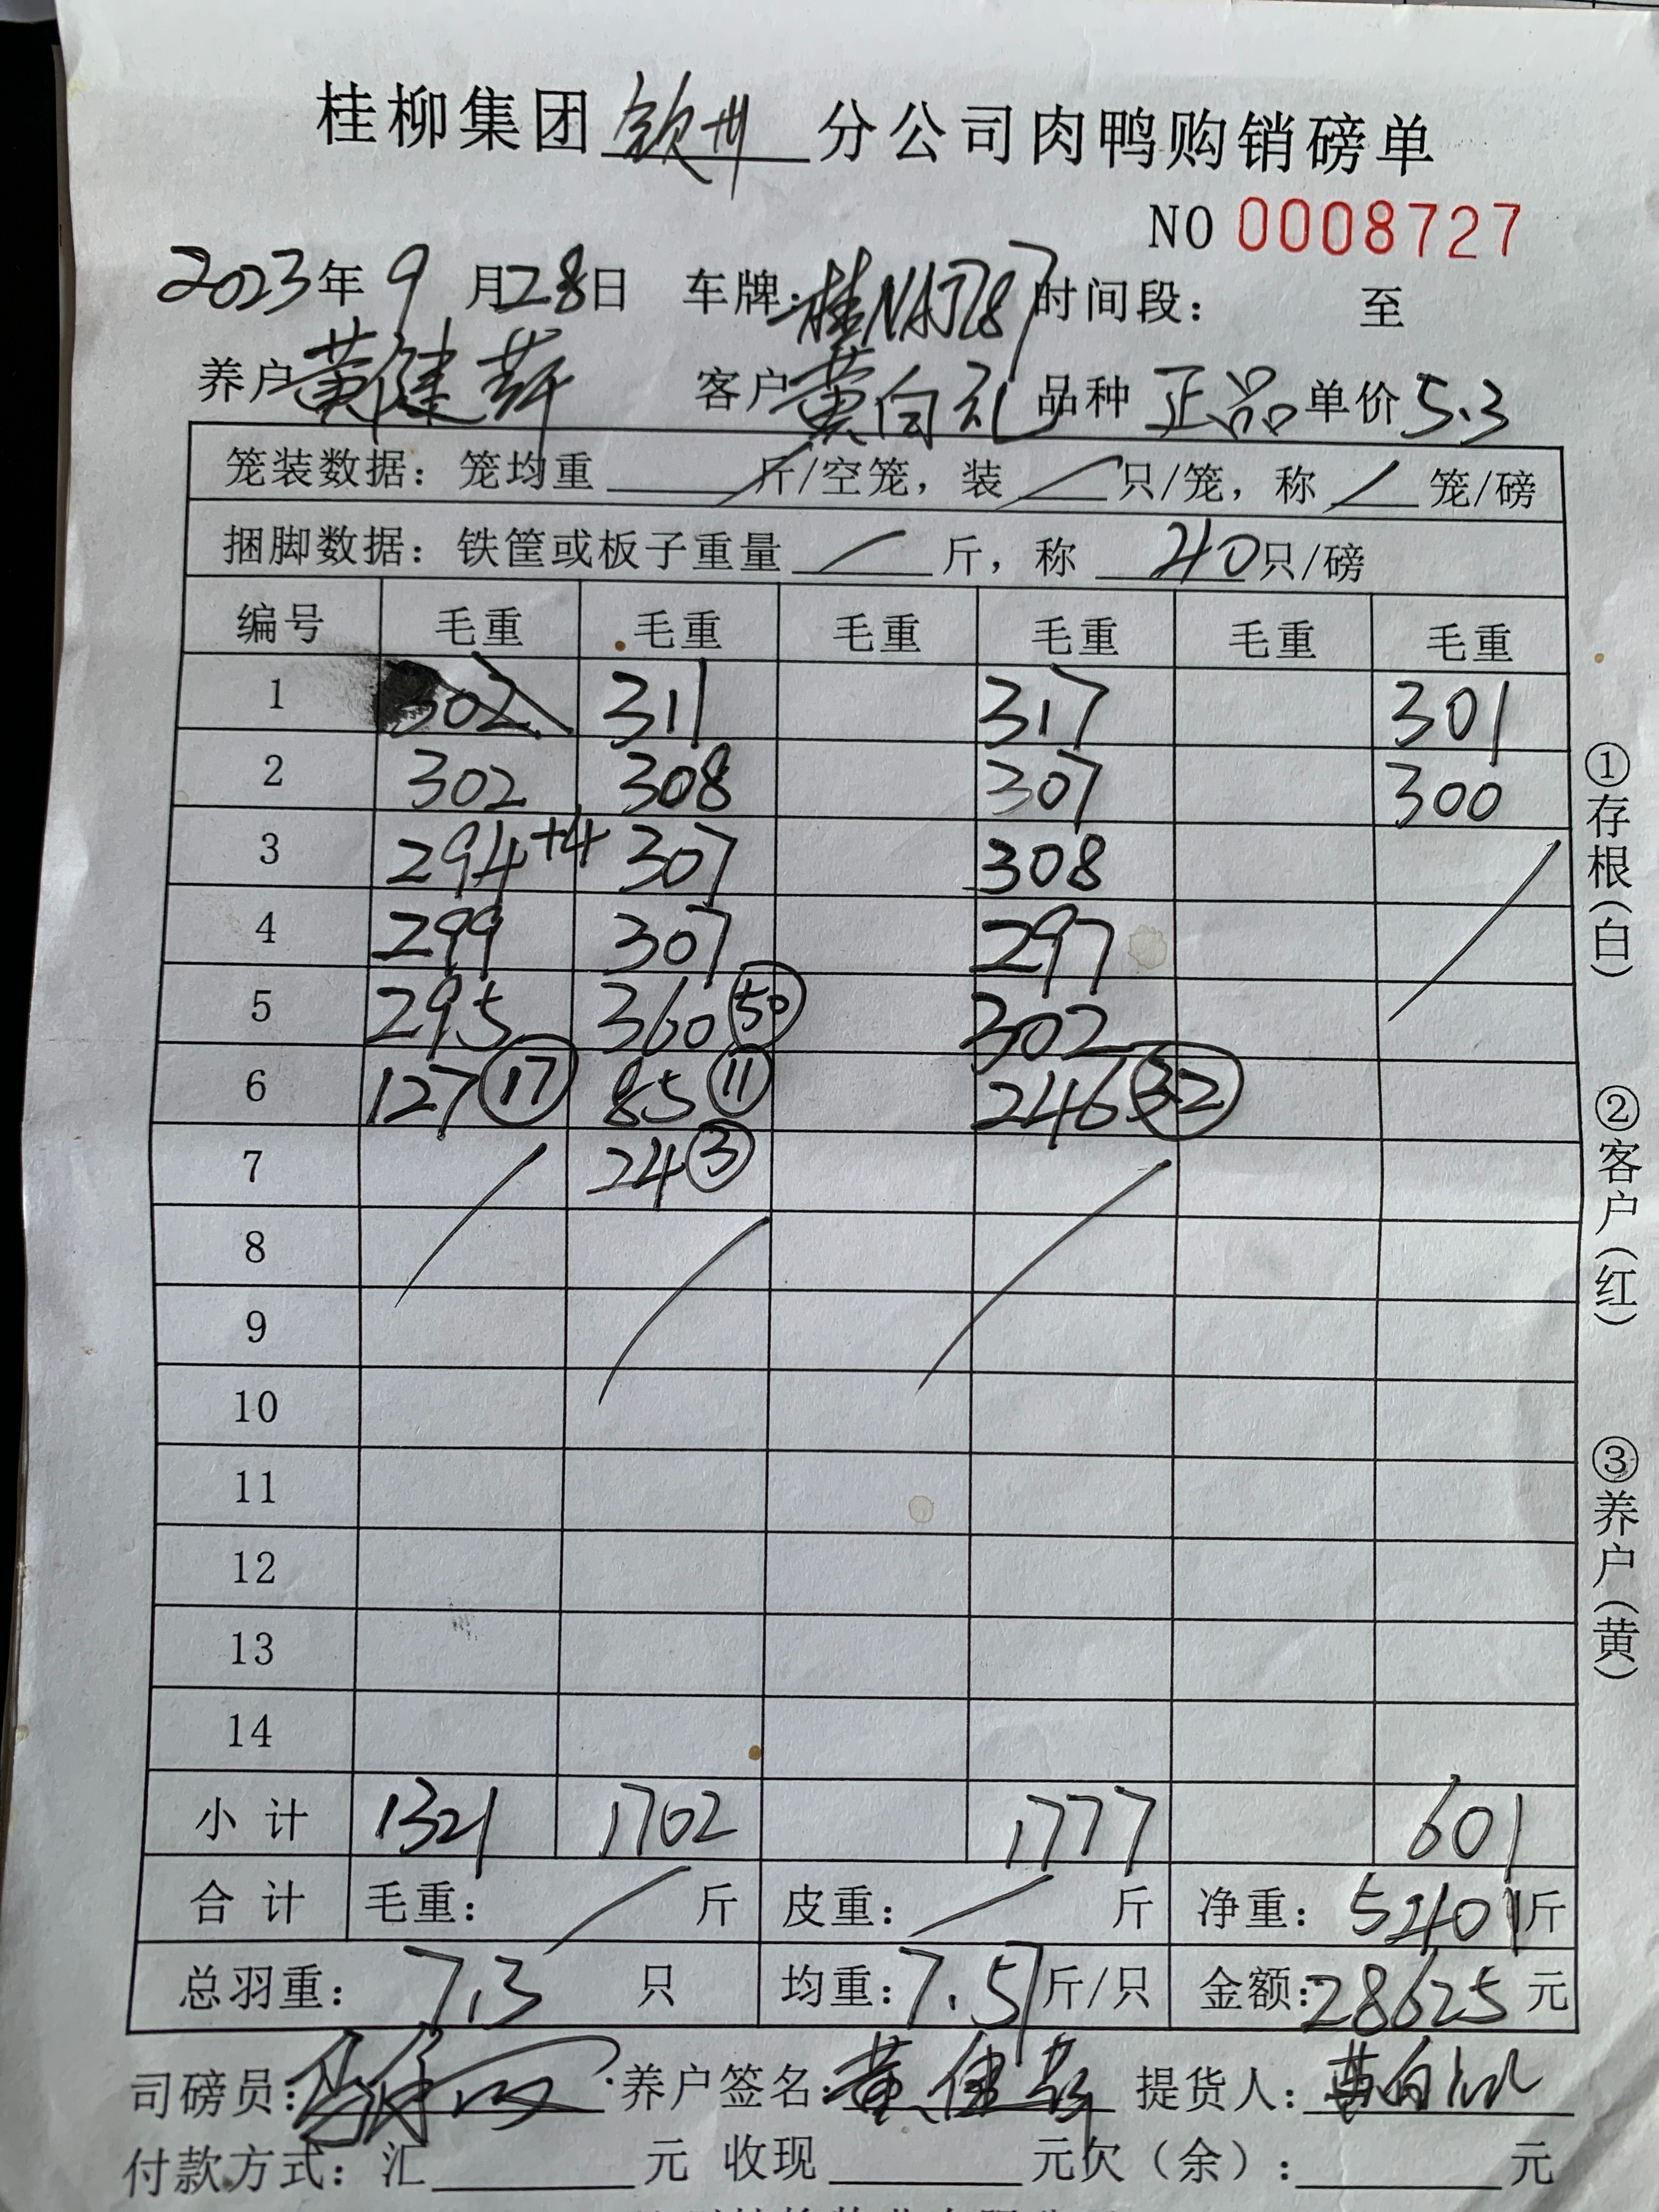 桂柳集团 钦州 分公司肉鸭购销磅单
NO 0008727
2023年 9 月 28日 车牌: 桂NAJ787 时间段: 至
养户 黄健 客户 黄向礼 品种 正品 单价 5.3
笼装数据: 笼均重 / 斤/空笼, 装 / 只/笼, 称 / 笼/磅
捆脚数据: 铁筐或板子重量 / 斤, 称 40 只/磅
编号 毛重 毛重 毛重 毛重 毛重 毛重
1 302 311 317 301
2 302 308 307 300
3 294+4 307 308
4 299 307 297
5 295 360 50 302
6 127 17 85 11 246 32
7 24 3
8
9
10
11
12
13
14
小计 1321 1702 1777 601
合计 毛重: / 斤 皮重: / 斤 净重: 5401斤
总羽重: 713 只 均重: 7.57斤/只 金额: 28625 元
司磅员: 养户签名: 黄健 提货人: 黄向礼
付款方式: 汇 元 收现 元欠(余): 元
①存根(白)
②客户(红)
③养户(黄)